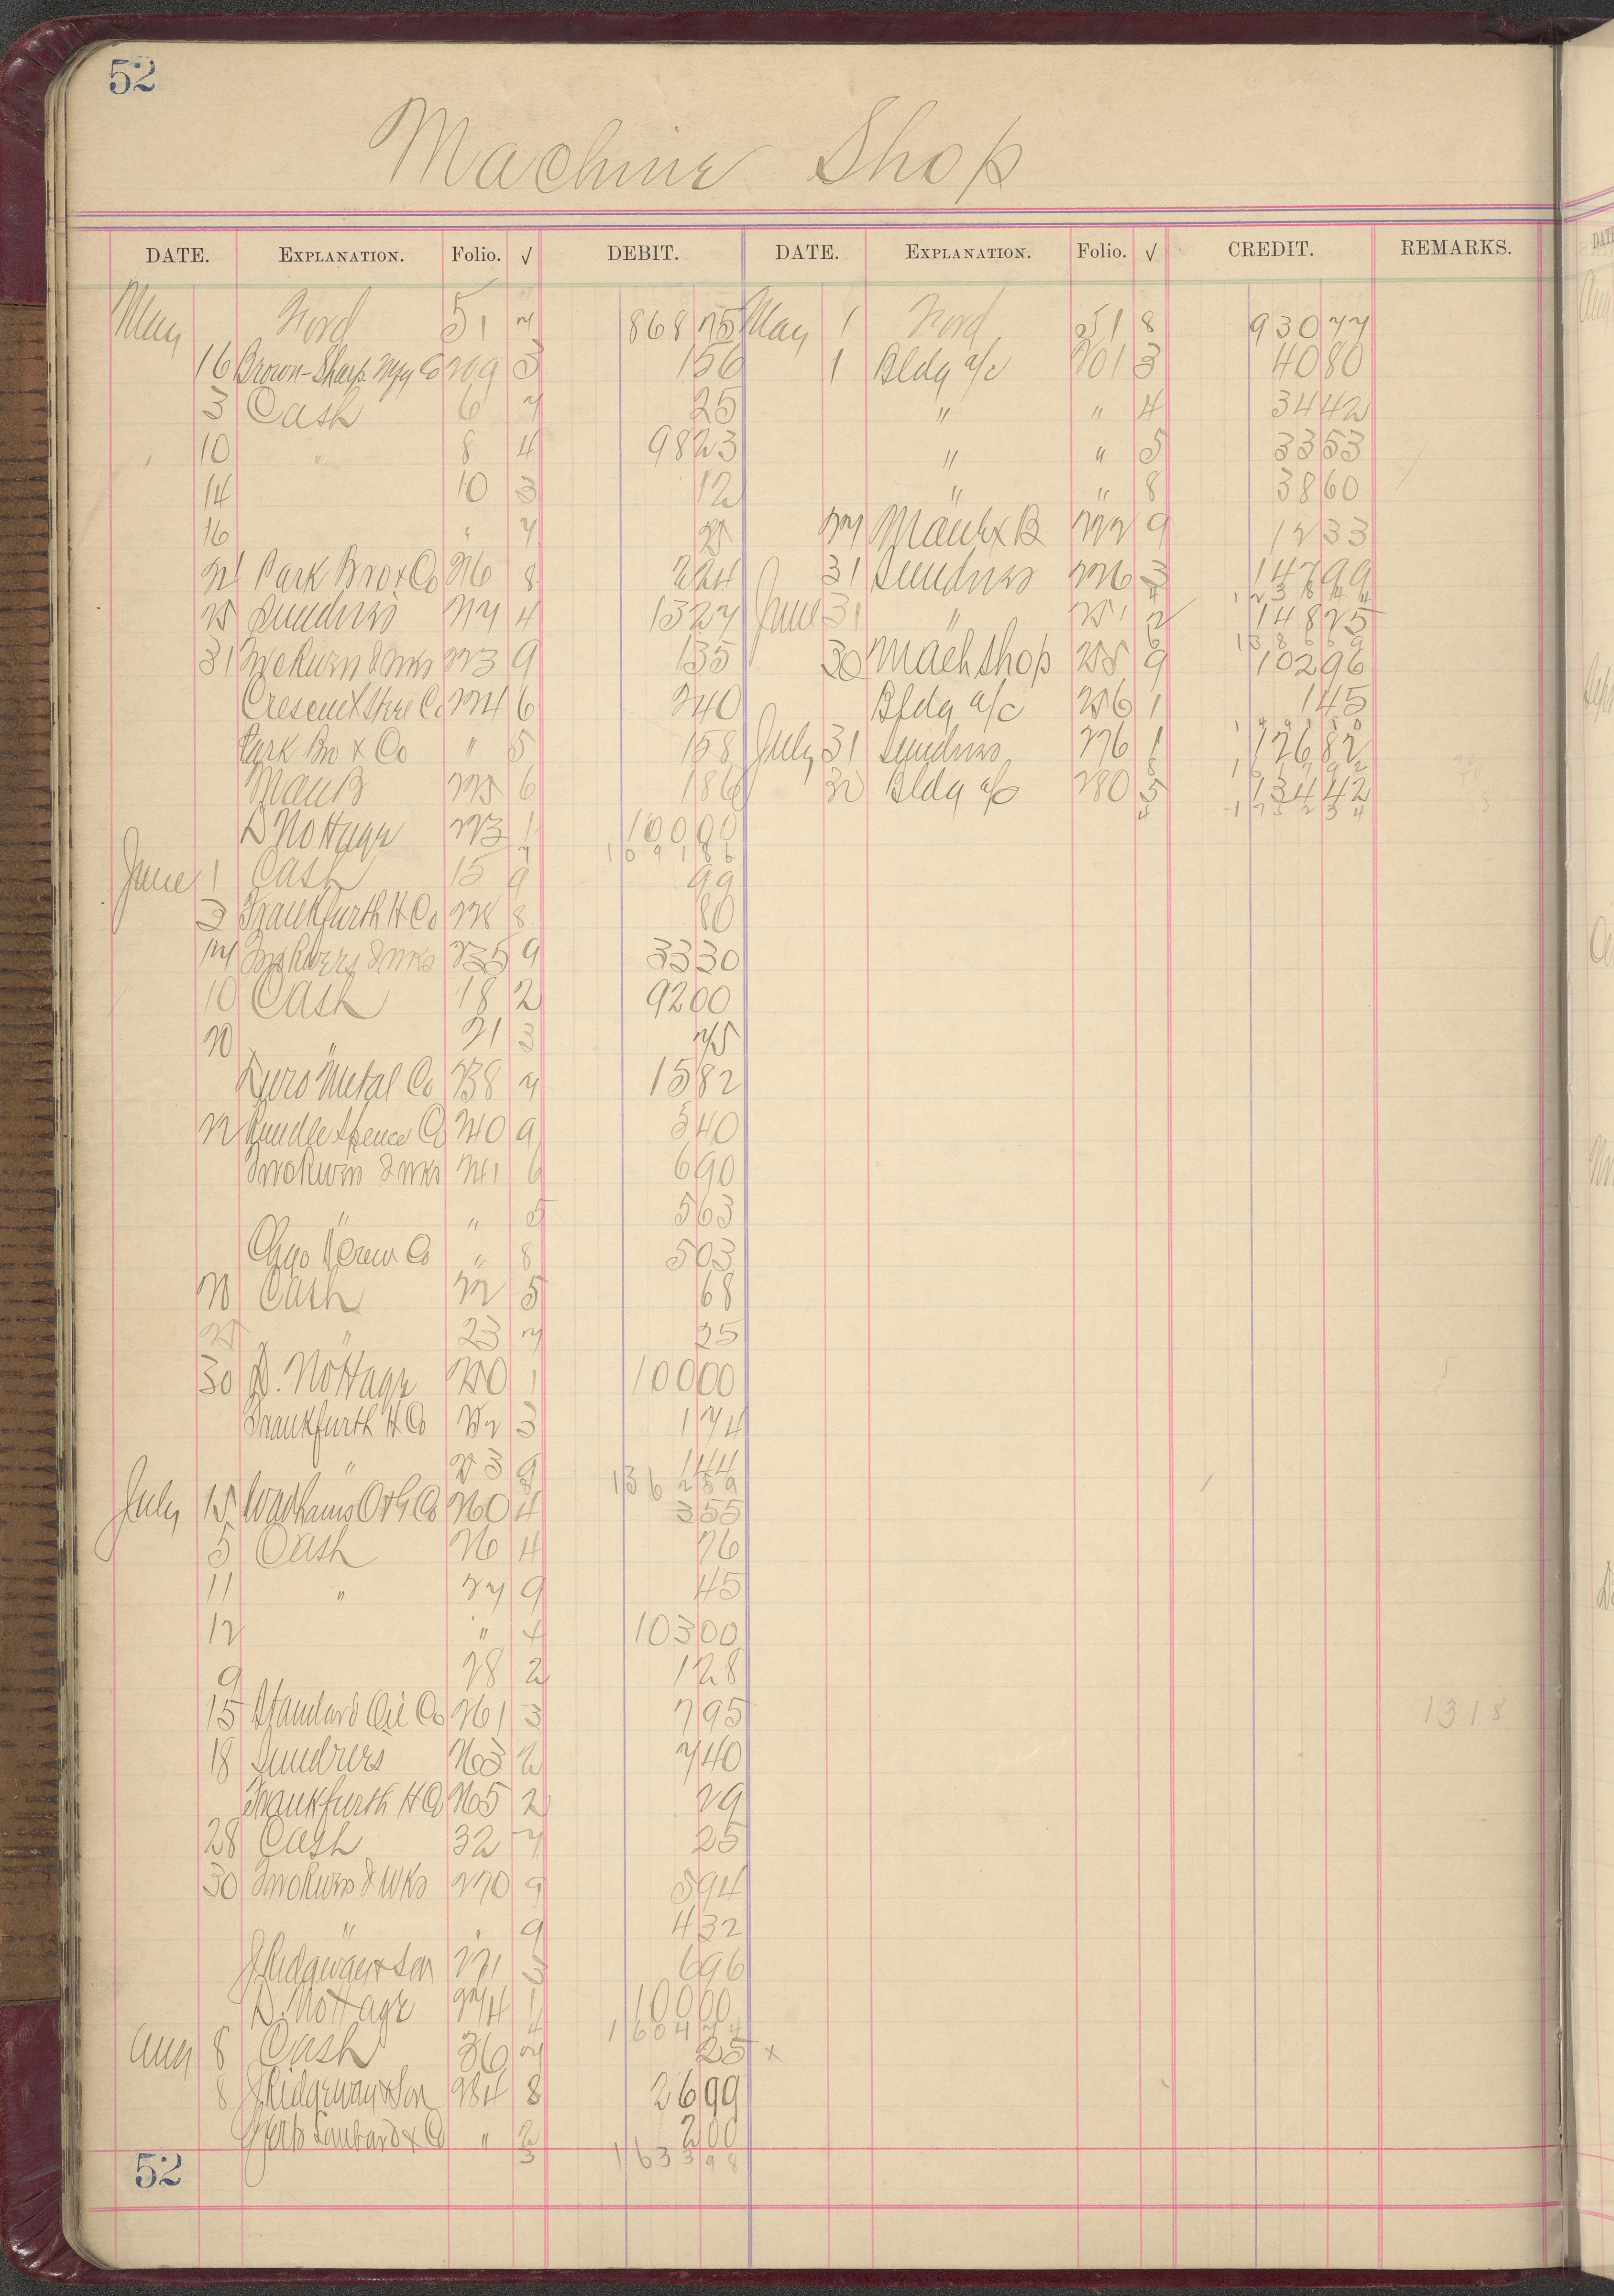 52
Machine Shop
DATE. EXPLANATION. Folio. √ DEBIT. DATE. EXPLANATION. Folio. √ CREDIT. REMARKS.
May Ford 51 7 868 75 May 1 Ford 51 8 930 77
16 Brown-Sharp Mfg Co 209 3 1 56 1 Bldg a/c 201 3 40 80
3 Cash 6 7 25 " " 4 34 42
10 " 8 4 98 23 " " 5 33 53
14 10 3 12 " " 8 38 60
16 " 7 27 Manfx B 222 9 12 33
21 Park Bro & Co 216 8 2 24 31 Sundries 226 3 147 99
25 Sundries 217 4 13 27 June 31 " 251 2 148 25
31 9 1 35 30 Mach Shop 255 9 102 96
Crescent Steel Co 224 6 2 40 Bldg a/c 256 1 1 45
Park Bro & Co " 5 1 58 July 31 Sundries 276 1 126 82
Man B 225 6 1 86 30 Bldg a/c 280 5 134 42
D Nottage 223 1 100 00
1091 86
June 1 Cash 15 9 99
3 Frankfurth H Co 228 8 80
235 9 33 30
10 Cash 18 2 92 00
20 " 21 3 75
Metal Co 238 7 15 82
22 Rundle Spence Co 240 9 5 40
241 6 6 90
" " 5 5 63
Chgo Screw Co " 8 5 03
20 Cash 22 5 68
25 " 23 7 25
30 D. Nottage 250 1 100 00
Frankfurth H Co 252 3 1 74
" 253 9 1 44
1362 59
July 15 Wadhams O & G Co 260 4 3 55
5 Cash 26 4 26
11 " 27 9 45
12 " 4 103 00
9 28 2 1 28
15 Standard Oil Co 261 3 7 95
18 Sundries 263 2 7 40
Frankfurth H Co 265 2 29
28 Cash 32 7 25
30 270 9 5 94
" " 9 4 32
J Ridgway & Son 271 3 6 96
D. Nottage 274 1 100 00
1604 24
Aug 8 Cash 36 7 25 x
8 J Ridgway & Son 284 8 26 99
" 2 2 00
1633 98
1318
52